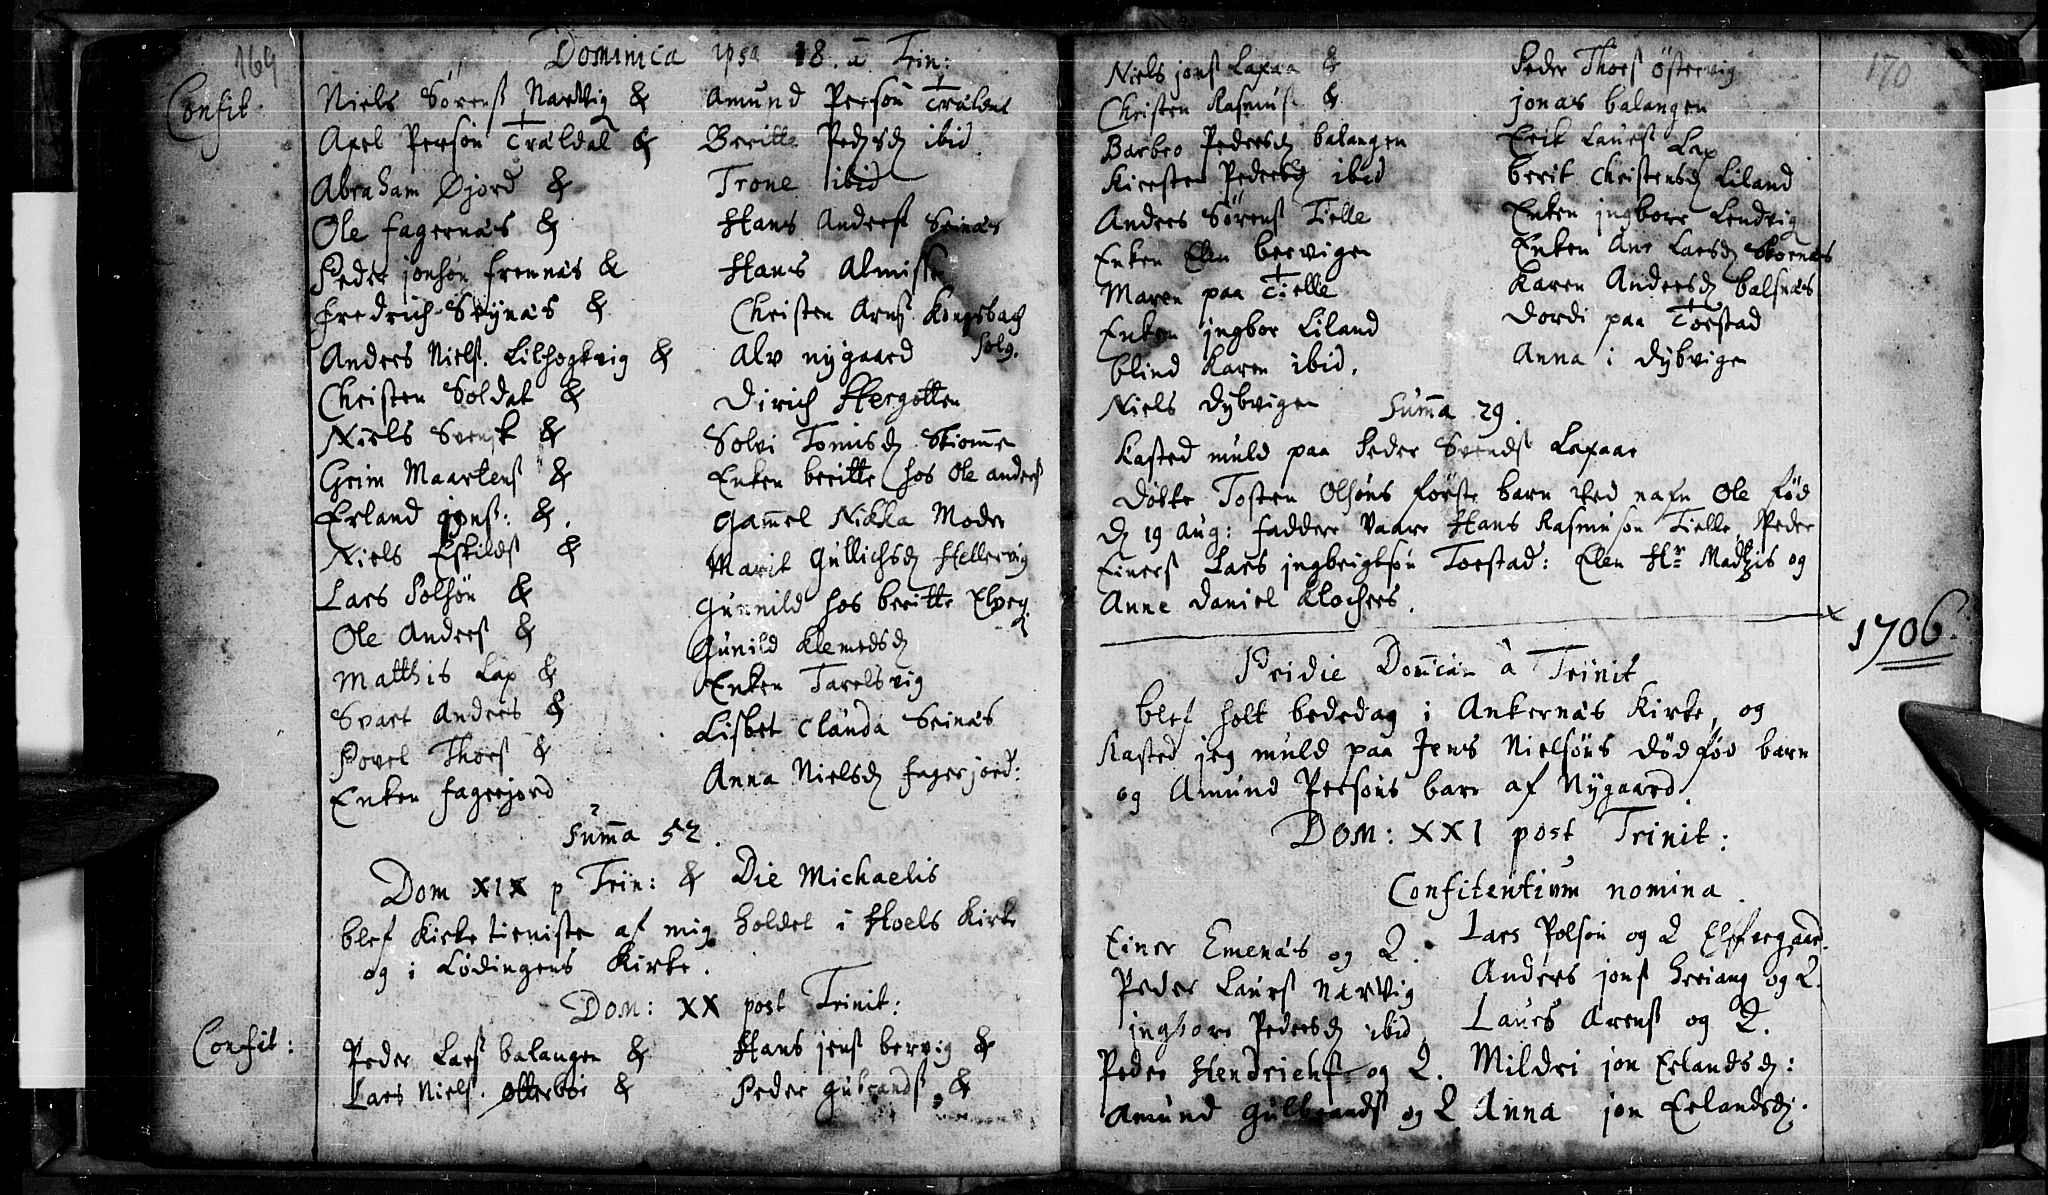 169
Dominica ipsa 18. a Trin:
Confit.
Niels Sørensß Narvig &
Axel Persøn Tråldal &
Abraham Øjord &
Ole fagernås &
Peder jonsøn frennås &
fredrich Skynås &
Anders Nielsß. Lilhogkvig &
Christen Soldat &
Niels Svensk &
Grim Maartensß &
Erland jonsß: &.
Niels Eskildsß &
Lars Polsøn &
Ole Andersß &
Matthis Lap &
Svart Anders &
Povel Thorsß &
Enken fagerjord
Amund Persøn Tråldal
Beritte Pedsd ibid
Trone ibid
Hans Andersß Seinås
Hans Almiss
Christen Arnsß Kongsbach
Solg.
Alv nygaard
Dirich Hergotten
Solvi Tomisd Skiomme
Enken beritte hos Ole andersß
Gammel Nikka Moder
Marit Gullichsd Hellervig
Gunnild hos beritte Elveg.
Gunild Klemedsd
Enken Tarelsvig
Lisbet Clauda Seinås
Anna Nielsd fagerjord:
Summa 52.
Dom XIX p Trin: & Die Michaelis
blef Kirke tieniste af mig holdet i Hoels Kirke
og i Lødingens Kirke.
Dom: XX post Trinit:
Confit:
Peder Larsß balangen &
Lars Nielsß. Otterbør &
Hans jensß bervig &
Peder gubrandsß. &
170
Niels jonsß Laxaa &
Christen Rasmusß &
Barbro Pedersd balangen
Kirsten Pedersd ibid
Anders Sørensß Tielle
Enken Elen bervigen
Maren paa Tielle
Enken jngbor Liland
blind Karen ibid.
Niels dybvigen
Peder Thorsß Østervig
jonas balangen
Erik Laursß Lap
berit Christensd Liland
Enken jngbore Lendvig
Enken Ane Larsd Skornås
Karen Andersd balsnås
Dordi paa Torstad
Anna i dybvigen
Summa 29.
Kasted muld paa Peder Svendsß Laxaae
Døbte Tosten Olsøns første barn ved nafn Ole fød
d 19 Aug: faddere Vaare Hans Rasmusøn Tielle, Peder
Einersß Lars jngbrigtsøn Torstad: Elen Hr Madtzis og
Anne Daniel Klochers.
1706.
Pridie Domican à Trinit
blef holt bededag i Ankernås Kirke, og
Kasted jeg muld paa Jens Nielsøns dødfød barn
og Amund Persøns barn af Nygaard.
Dom: XXI post Trinit:
Confitentium nomina.
Einer Emenås og Q.
Peder Laursß Narvig
jngbore Pedersd ibid
Peder Hendrichsß og Q.
Amund Gulbrandsß og Q
Lars Polsøn og Q Elffvegaard.
Anders jonsß heriang og Q.
Laurs Arensß og Q.
Mildri jon Erlandsd:
Anna jon Erlandsd: